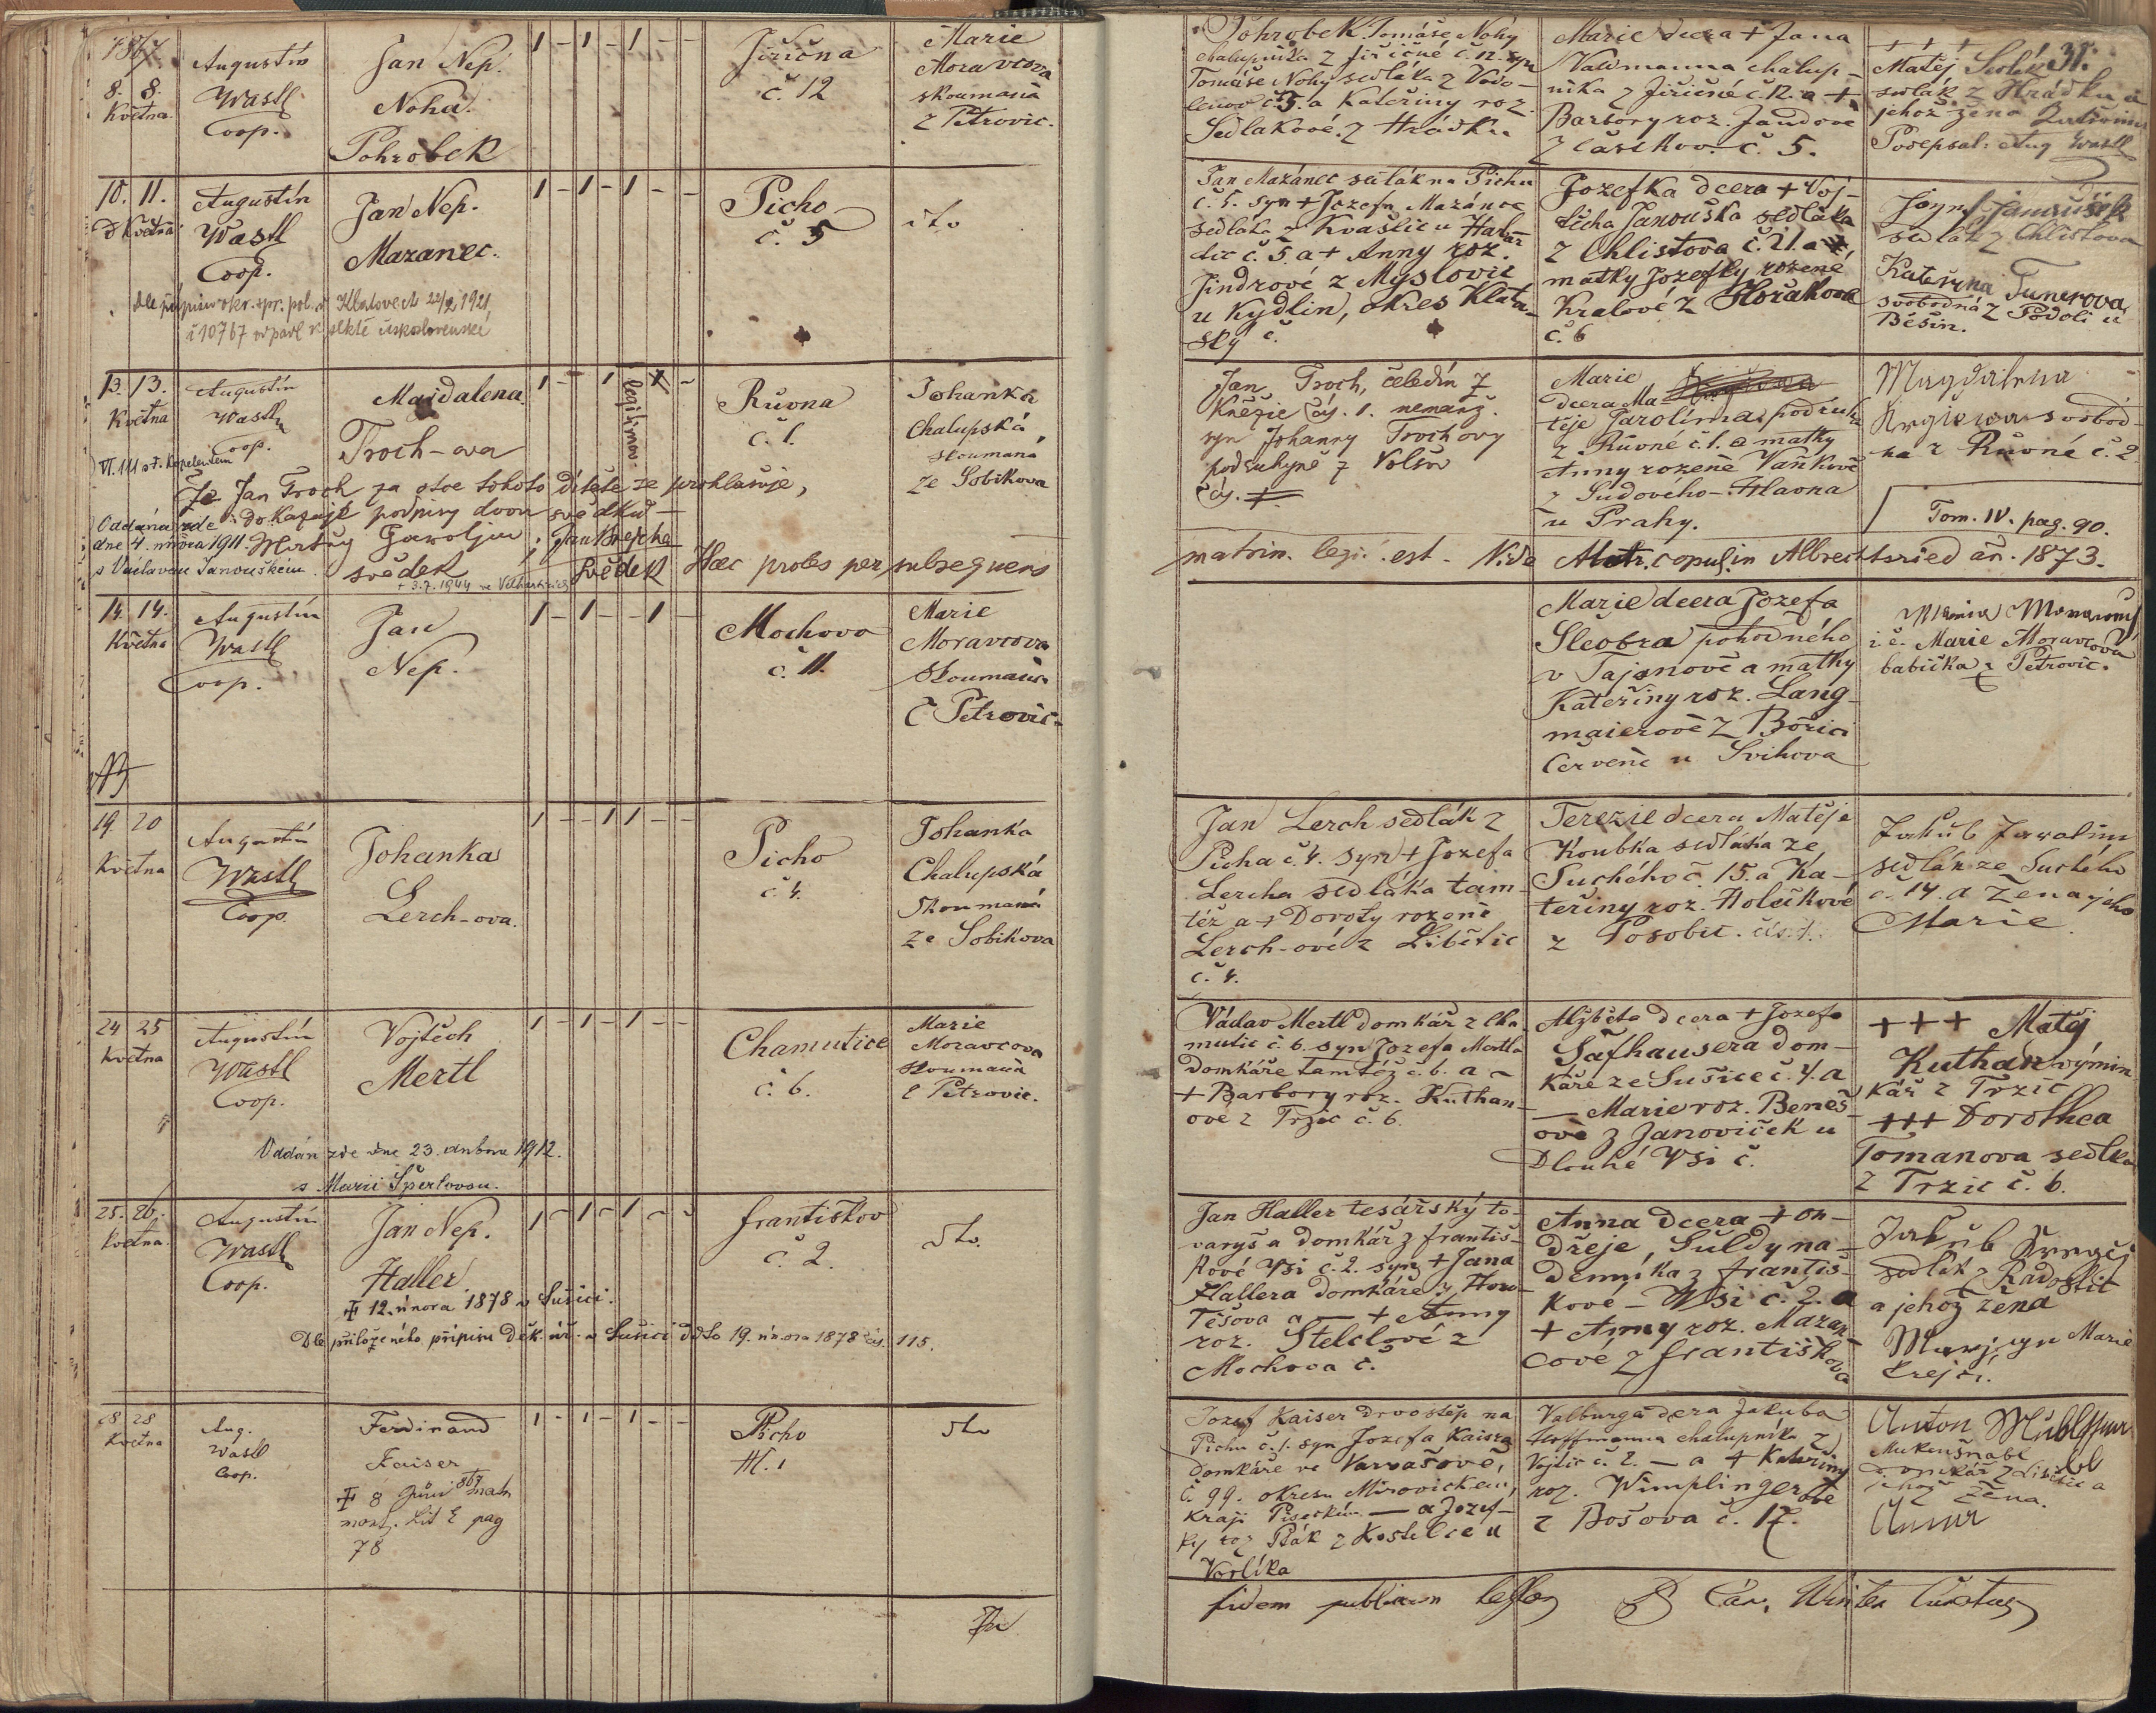 1867.
8. 8.
Května
Augustín
Wastl
Coop.
Jan Nep.
Noha.
Pohrobek
1 – 1 – 1 – –
Jiřična
č. 12
Marie
Moravcova
skoumaná
z Petrovic.
Pohrobek Tomáše Nohy
chalupníka z Jiřičné č. 12. syn
Tomáše Nohy sedláka z Vodo-
lenov č. 5. a Kateřiny roz.
Sedlakové z Hrádku
Marie dcera + Jana
Valdmanna chalup-
níka z Jiřičné č. 12. a +
Barbory roz. Jandove
z Častkov. č. 5.
+ + +
Matěj
31.
sedlák z Hrádku a
jehož žena
Podepsal: Aug Wastl
10. 11.
Května
Augustín
Wastl
Coop.
Jan Nep.
Mazanec.
1 – 1 – 1 – –
Picho
č. 5
dto
Dle přípisu okr. spr. pol. v Klatovech 22/2 1921,
č 10767 odpadl k sektě československé
Jan Mazánec sedlák na Pichu
č. 5. syn + Jozefa Mazánce
sedláka z Kvášlic u Haraz
dic č. 5. a + Anny roz.
Jindrové z Myslovic
u Kydlin, okres Klatov-
ský č.
Jozefka dcera + Voj-
těcha Janouška sedláka
z Chlistova č. 21. a
matky Jozefky rozené
Kralové z Hořakova
č. 6
Janoušek
sedlák z Chlistova
Kateřina Tunerova
svobodná z Podolí u
Běšin.
13. 13.
Května
Augustín
Wastl
Coop.
Majdalena
Troch-ova
1 – 1
legitimov.
Růvna
č. 1.
Johanka
Chalupská
skoumaná
ze Sobikova
Že Jan Troch za otce tohoto dítěte se prohlašuje,
dokazuje podpisy dvou svědků –
Oddána zde
dne 4. února 1911.
s Václavem Janouškem.
Matěj Jarolím
svědek
Jan Krejcha
svědek
+ 3.7.1944 ve Velharticích
Haec proles per subsequens
matrim. legit. est. Vide Matr. copul. in Albrechtsried an. 1873.
Jan Troch, čeledín z
Kněžic čis. 1. nemanž.
syn Johanny Trochovy
podruhyně z Volšov
čis.
Marie
dcera Ma
těje Jarolíma, podruha
z Růvné č. 1. a matky
Anny rozené Vaňkové
z Sudového-Hlavna
u Prahy.
Magdalena
svobod-
ná z Růvné č. 2
Tom. IV. pag. 90.
14. 14.
Května
Augustín
Wastl
Coop.
Jan
Nep.
1 – 1 – – 1 –
Mochovo
č. 11.
Marie
Moravcova
skoumaná
z Petrovic
Marie dcera Jozefa
Šleobra pohodného
v Tajanově a matky
Kateřiny roz. Lang-
maierové z Bořici
Červené u Svihova
Marie Moravcová
babička z Petrovic.
19. 20
Května
Augustín
Wastl
Coop.
Johanka
Lerch-ova.
1 – – 1 1 – –
Picho
č. 4.
Johanka
Chalupská
skoumaná
ze Sobikova
Jan Lerch sedlák z
Picha č. 4. syn + Jozefa
Lercha sedláka tam-
též a + Doroty rozené
Lerch-ové z Libětic
č. 4.
Terezie dcera Matěje
Koubka sedláka ze
Suchého č. 15. a Ka-
teřiny roz. Holečkové
z Posobic.
Jakub Jarolím
sedlák ze Suchého
č. 14. a žena jeho
Marie.
24 25
Května
Augustín
Wastl
Coop.
Vojtěch
Mertl
1 – 1 – 1 – –
Chamutice
č. 6.
Marie
Moravcova
skoumaná
z Petrovic.
Oddán zde dne 23. dubna 1912.
s Marií Šperlovou.
Václav Mertl domkář z Cha
mutic č. 6. syn Jozefa Mertla
domkáře tamtéž č. 6. a –
+ Barbory roz. Kuthan-
ové z Tržic č. 6.
Alžběta dcera + Jozefa
Šafhausera dom-
káře ze Sušice č. 4. a
– Marie roz. Beneš-
ové z Janoviček u
Dlouhé Vsi č.
+++ Matěj
Kuthan výmin
kář z Tržic
+++ Dorothea
Tomanova sedlka
z Tržic č. 6.
25. 26.
Května.
Augustín
Wastl
Coop.
Jan Nep.
Haller
1 – 1 – 1 – –
Frantiskov
č. 2.
dto.
+ 12. února 1878 v Sušici.
Dle přiloženého přípisu Děk. úř. v Sušici ddto 19. února 1878 čís. 115.
Jan Haller tesářský to-
varyš a domkář z Františ-
kové Vsi č. 2. syn + Jana
Hallera domkáře z Horo-
těšova a – + Anny
roz. Stelclové z
Mochova č.
Anna dcera + On-
dřeje Šuldy na-
denníka z Františ-
kové – Vsi č. 2. a
+ Anny roz. Mazan-
cové z Frantiskova
Jakub Krejčí
sedlák z Radostic
a jehož žena
Marie
Krejčí.
28 28
Května
Aug.
Wastl
Coop.
Ferdinand
Kaiser
+ 8 Juni 867 matr
mort. Lit E pag
78
1 – 1 – 1 – –
Picho
N. 1
dto
Jozef Kaiser drvoštěp na
Pichu č. 1. syn Jozefa Kaisra
domkáře ve Varvažově,
č. 99. okresu Mirovickém,
kraji Píseckém – a Jozef-
ky roz Pták z Kostelce u
Vorlíka
Valburga dcera Jakuba
Hoffmanna chalupníka z
Vojtic č. 2. – a + Kateřiny
roz. Wimplingerove
z Bošova č. 17.
Anton
domkář z Libětic a
jehož žena.
Anna
fidem publicam
Winter Curatus